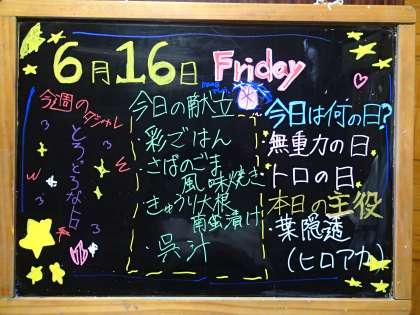 6月16日 Friday
今週のダジャレ
とろどろなトロ
今日の献立
・彩ごはん
・さばのごま
風味焼き
・きゅうり大根
南蛮漬け
・呉汁
今日は何の日?
・無重力の日
・トロの日
本日の主役
・葉隠透
(ヒロアカ)